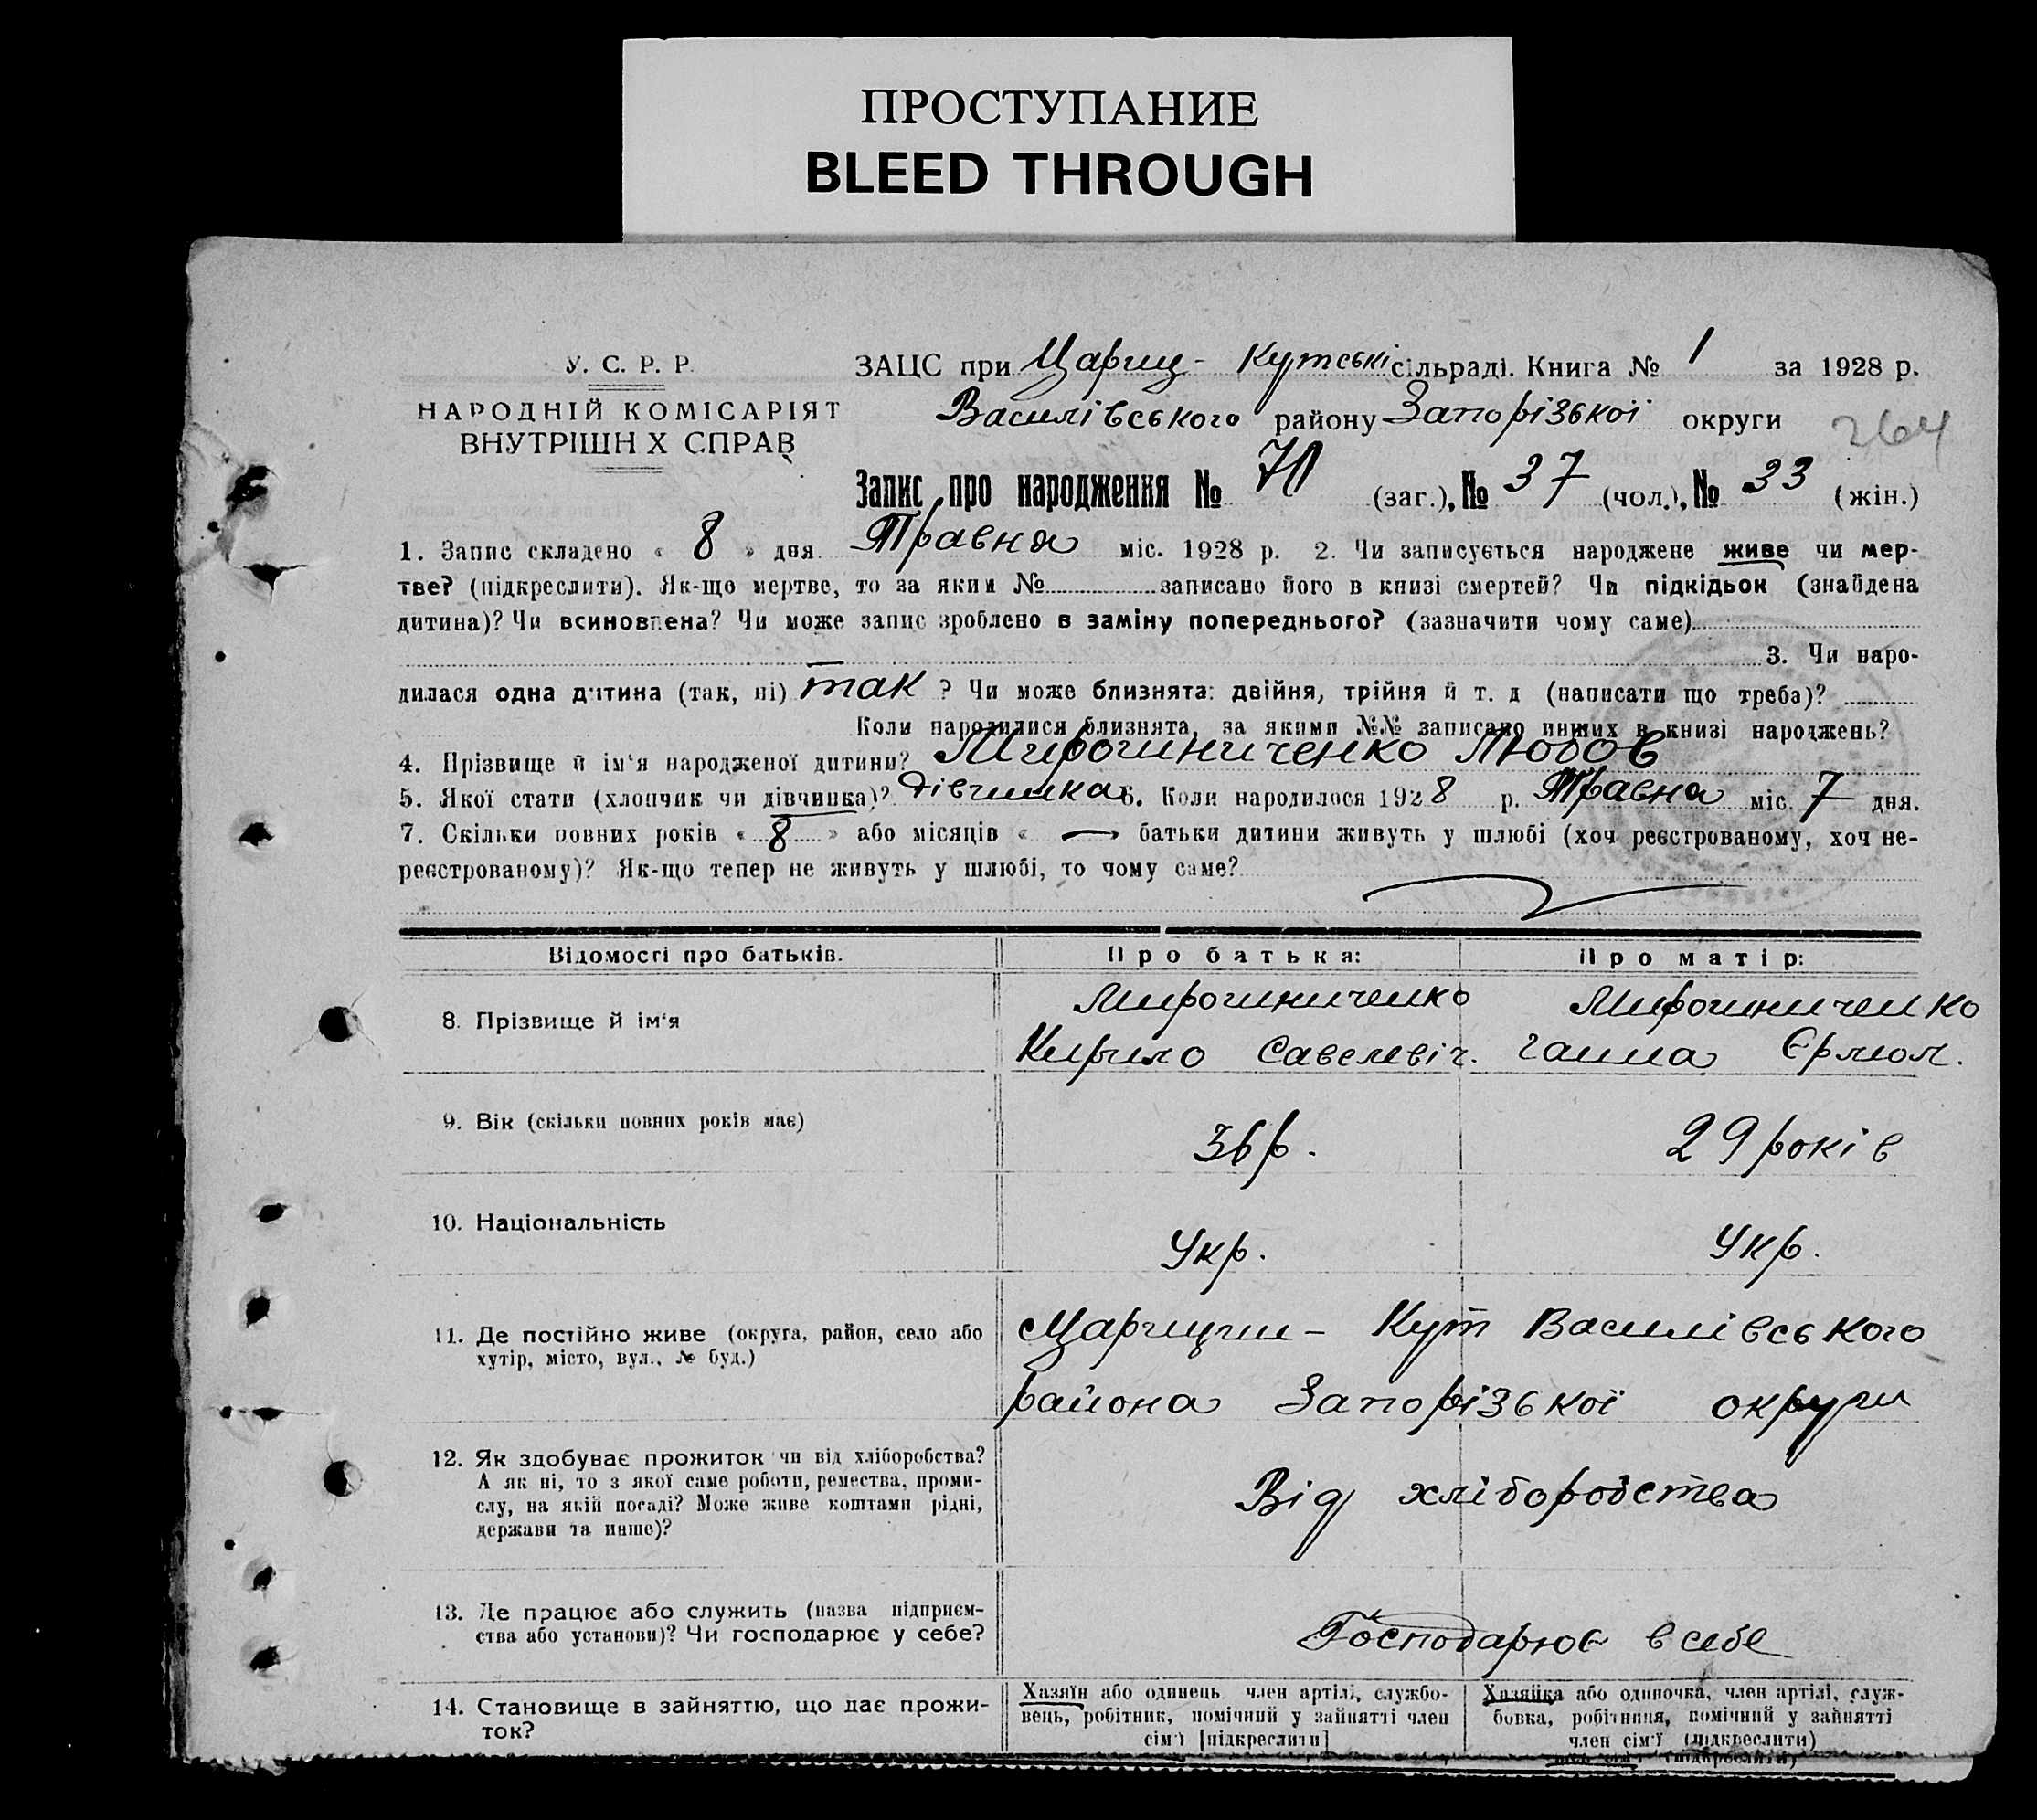 ПРОСТУПАНИЕ
BLEED THROUGH
У. С. Р. Р.
НАРОДНІЙ КОМІСАРІЯТ
ВНУТРІШН Х СПРАВ
ЗАЦС при Цариц- Кутські сільраді. Книга № 1 за 1928 р.
Василівського району Запорізької округи
264
Запис про народження № 70 (заг.), № 37 (чол.), № 33 (жін.)
1. Запис складено « 8 » дня Травня міс. 1928 р. 2. Чи записується народжене живе чи мер-
тве? (підкреслити). Як-що мертве, то за яким № записано його в книзі смертей? Чи підкідьок (знайдена
дитина)? Чи всиновлена? Чи може запис зроблено в заміну попереднього? (зазначити чому саме)
3. Чи наро-
дилася одна дитина (так, ні) так ? Чи може близнята: двійня, трійня й т. д (написати що треба)?
Коли народилися близнята, за якими №№ записано инших в книзі народжень?
4. Прізвище й ім'я народженої дитини? Мирошниченко Любов
5. Якої стати (хлопчик чи дівчинка)? Дівчинка 6. Коли народилося 1928 р. Травня міс. 7 дня.
7. Скільки повних років « 8 » або місяців « — » батьки дитини живуть у шлюбі (хоч реєстрованому, хоч не-
реєстрованому)? Як-що тепер не живуть у шлюбі, то чому саме?
Відомості про батьків. Про батька: Про матір:
8. Прізвище й ім'я
Мирошниченко
Кирило Савелевіч.
Мирошниченко
Ганна Єрмол.
9. Вік (скільки повних років має) 36 р. 29 років
10. Національність Укр. Укр.
11. Де постійно живе (округа, район, село або
хутір, місто, вул., № буд.)
Царицин- Кут Василівського
района Запорізької округи
12. Як здобуває прожиток чи від хліборобства?
А як ні, то з якої саме роботи, ремества, проми-
слу, на якій посаді? Може живе коштами рідні,
держави та инше)?
Від хліборобства
13. Де працює або служить (назва підприєм-
ства або установи)? Чи господарює у себе?
Господарює в себе
14. Становище в зайняттю, що дає прожи-
ток?
Хазяїн або одинець член артілі, службо-
вець, робітник, помічний у зайнятті член
сім'ї [підкреслити]
Хазяйка або одиночка, член артілі, служ-
бовка, робітниця, помічний у зайнятті
член сім'ї (підкреслити)